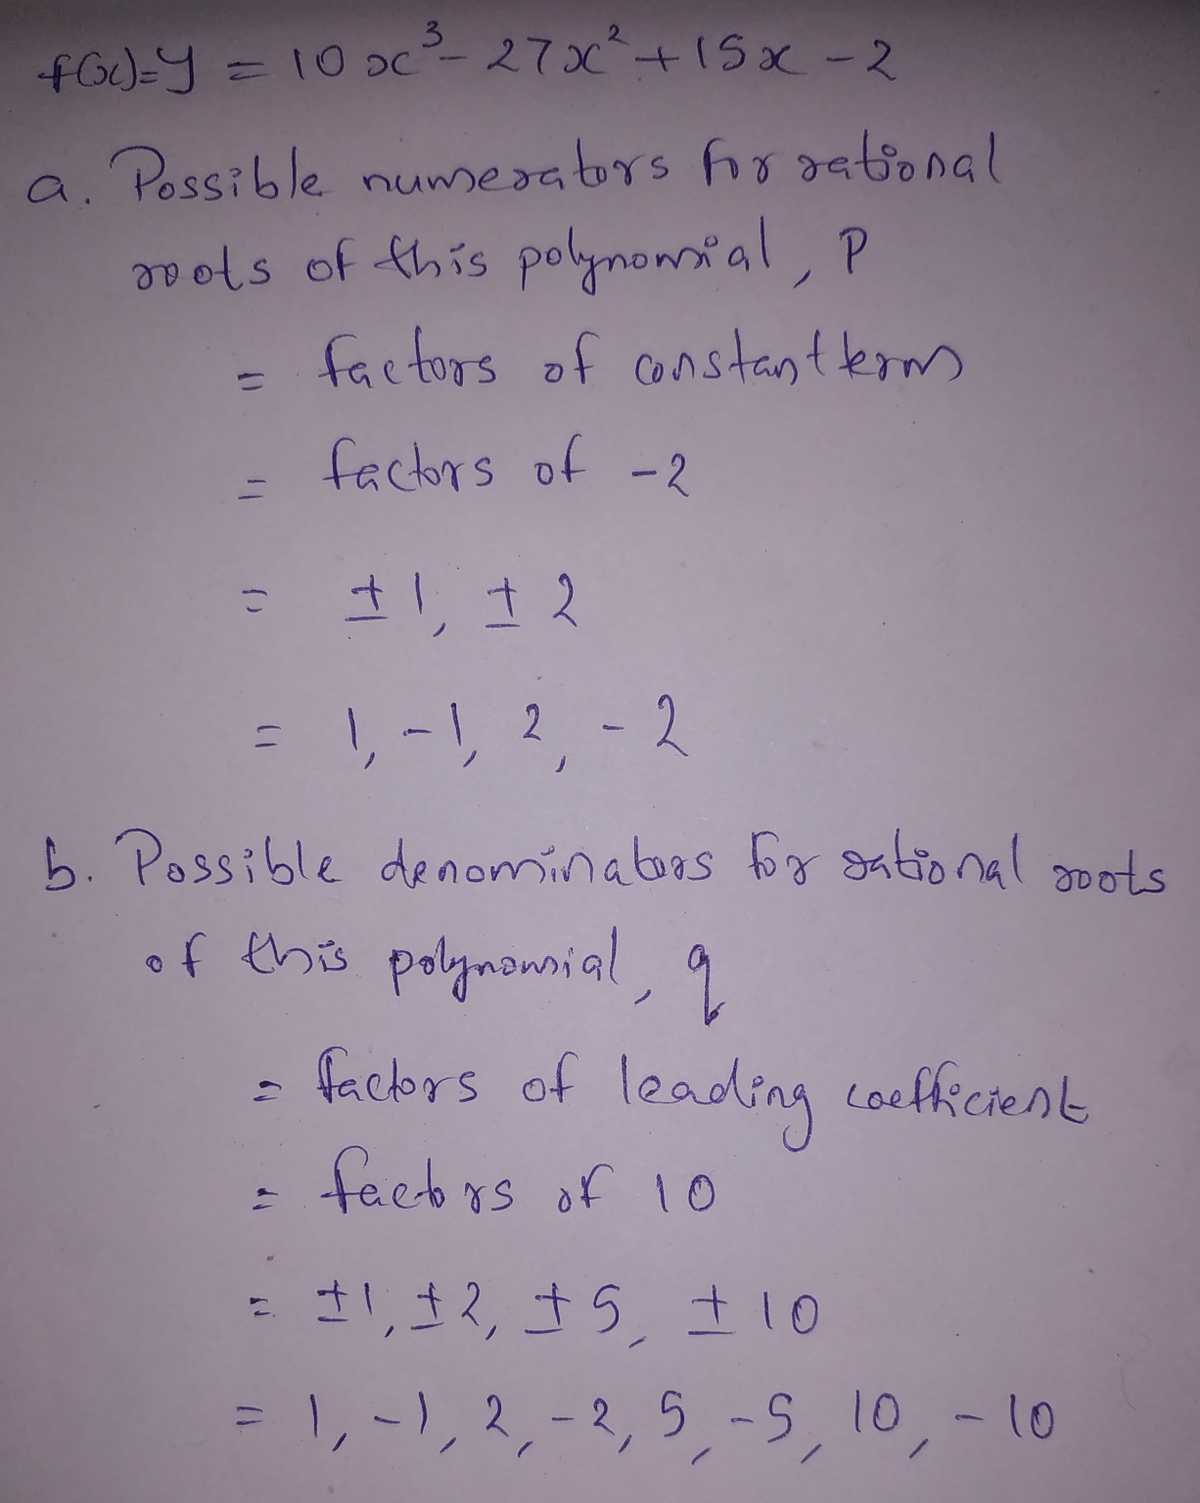 f(x)=y = 10x³ - 27x² + 15x - 2
a. Possible numerators for rational
roots of this polynomial, P
= factors of constant term
= factors of -2
= ±1, ±2
= 1, -1, 2, -2
b. Possible denominators for rational roots
of this polynomial, q
= factors of leading coefficient
= factors of 10
= ±1, ±2, ±5, ±10
= 1, -1, 2, -2, 5, -5, 10, -10